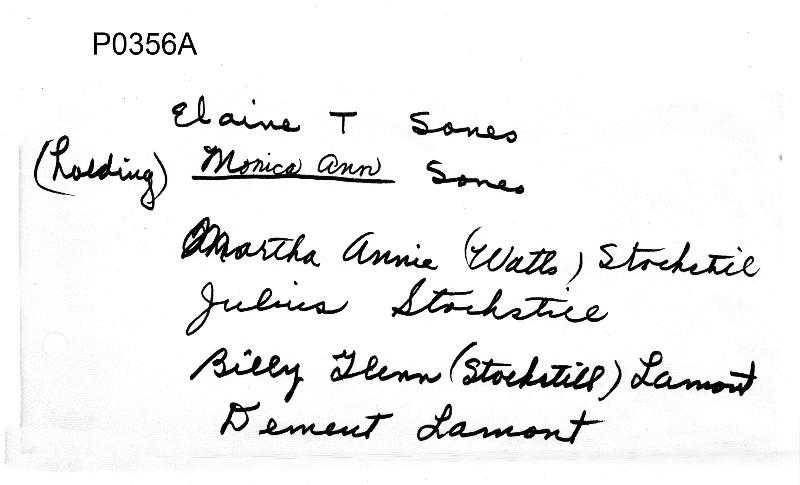 P0356A
Elaine T Sones
(holding) Monica Ann Sones
Martha Annie (Watts) Stockstil
Julius Stockstill
Billy Glenn (Stockstill) Lamont
Dement Lamont